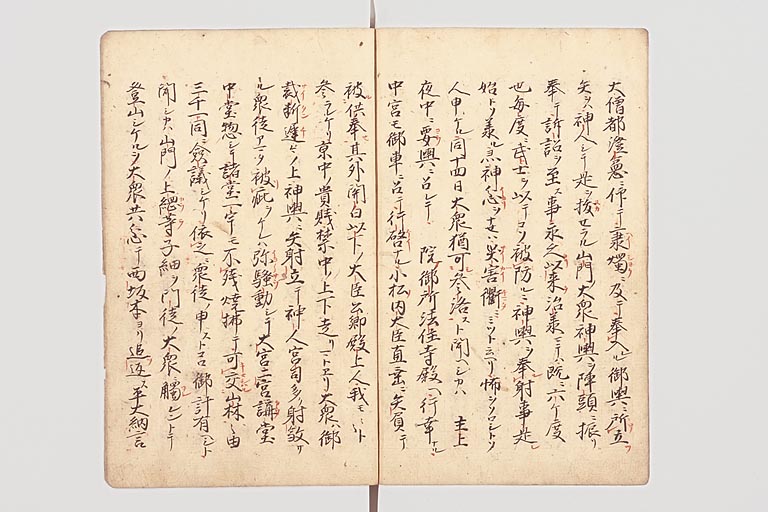 大僧都澄憲ニ仰テ秉燭ニ及テ奉入ル御輿ニ所立
矢ヲハ神人シテ是ヲ抜セラル山門ノ大衆神輿ヲ陣頭ニ振リ
奉テ訴詔ヲ至ス事永久以来治承ニテハ既ニ六ケ度
也毎度ニ武士ヲ以テコソ被防ルニ神輿ヲ奉射事是レ
始トソ承ル霊神怒ヲ
人申ケル同十四日大衆猶可参洛スト聞ヘシカハ 主上
夜中ニ要輿ニ召シテ 院御所法住寺殿ヘ行幸ナル
中宮モ御車ニ召テ行啓ナル小松内大臣直衣ニ矢負テ
被供奉其外関白以下ノ大臣公卿殿上人我モ
参ラレケリ京中ノ貴賤禁中ノ上下走リ大衆ハ御
裁断遅シ上神輿ニ矢射立テ神人宮司多ク射
衆徒被疵ケレハ弥騒動シテ大宮二宮講堂
中堂惣シテ諸堂一宇モ不残焼拂テ可交山林ニ由
三千一同ニ僉議シケリ依之衆徒ノ申ストコロ御計有ヘシト
聞シカハ山門ノ上綱等子細ヲ門徒ノ大衆ニ觸レントテ
登山シケルヲ大衆共怒テ西坂本ヨリ追返ス平大納言